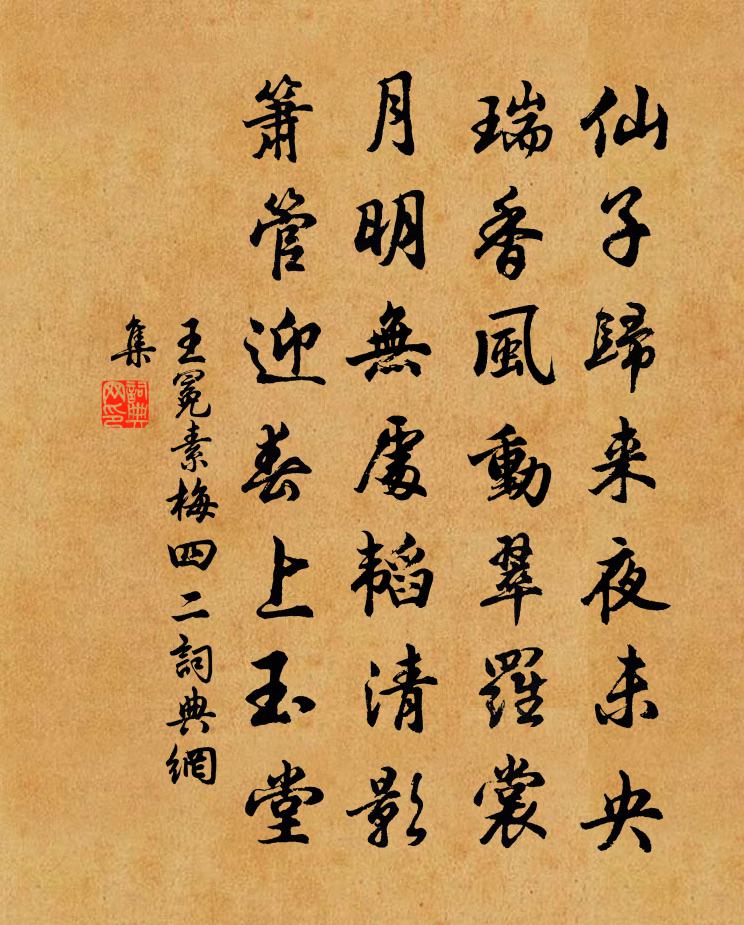 仙子歸来夜未央
瑞香風動翠羅裳
月明無處韜清影
簫管迎春上玉堂
王冕素梅四二詞典網
集
詞典網印